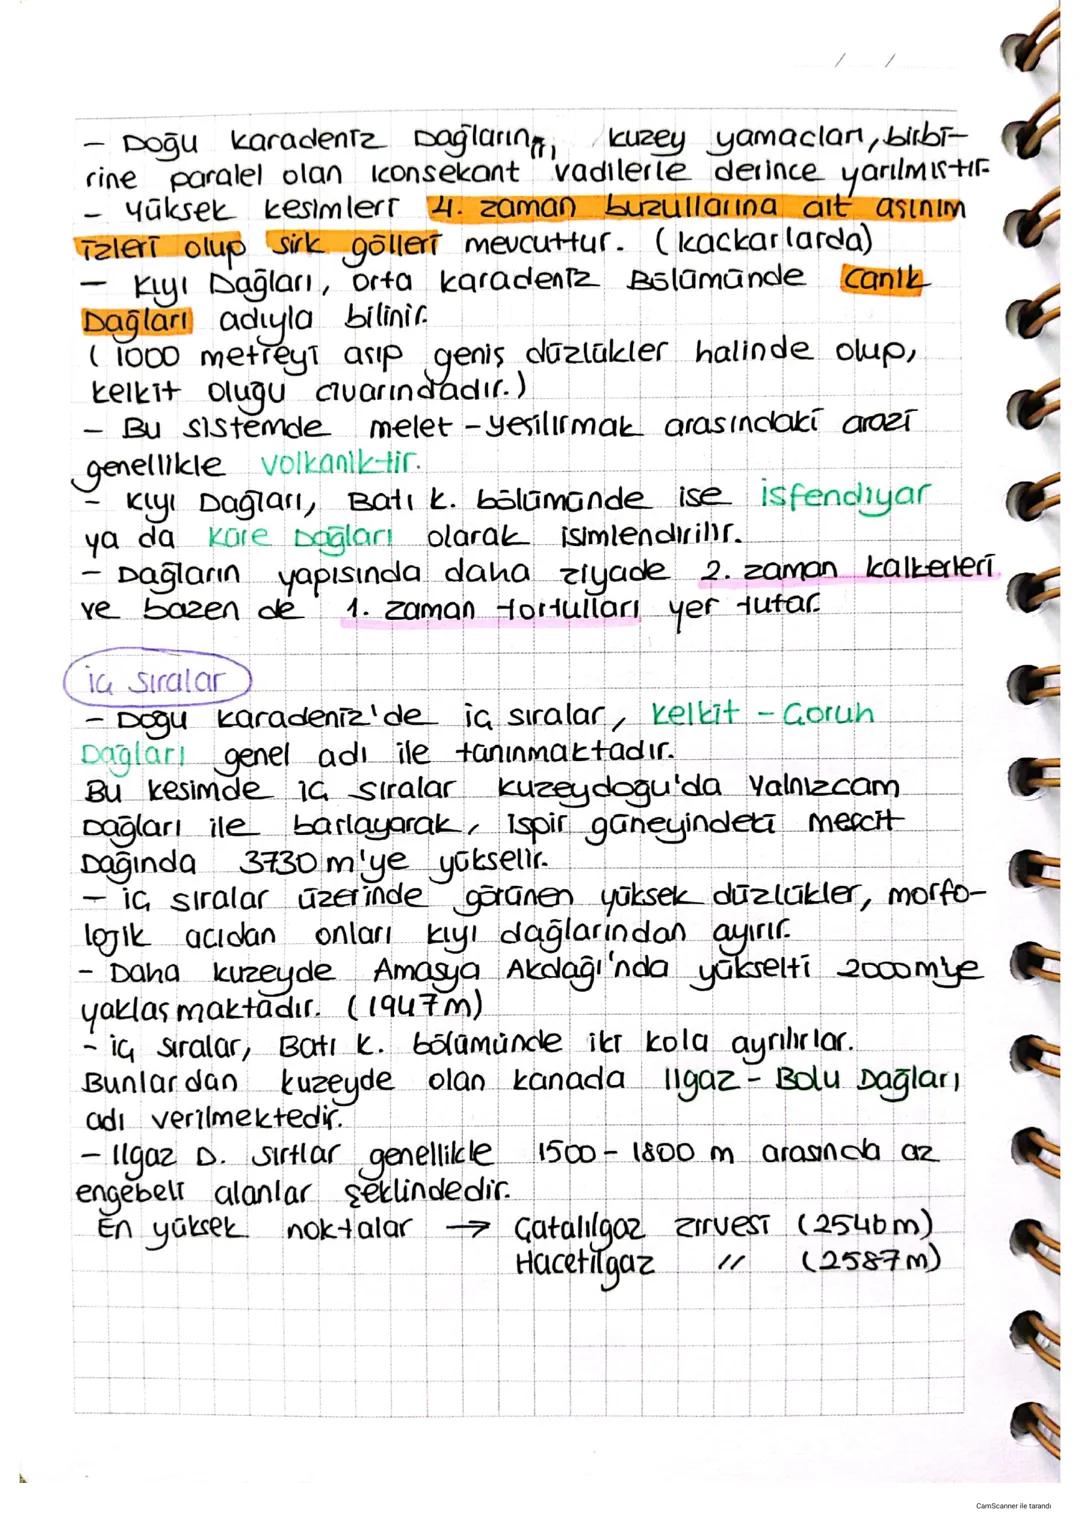 / /
- Doğu Karadeniz Dağlarının, kuzey yamaçları, birbi-
rine paralel olan konsekant vadilerle derince yarılmıştır.
- Yüksek kesimleri 4. zaman buzullarına ait aşınım
izleri olup sirk gölleri mevcuttur. (kaçkarlarda)
- Kıyı Dağları, Orta Karadeniz Bölümünde Canik
Dağları adıyla bilinir.
(1000 metreyi aşıp geniş düzlükler halinde olup,
Kelkit oluğu civarındadır.)
- Bu sistemde melet - Yeşilırmak arasındaki arazi
genellikle volkaniktir.
- Kıyı Dağları, Batı K. bölümünde ise isfendiyar
ya da Küre Dağları olarak isimlendirilir.
- Dağların yapısında daha ziyade 2. zaman kalkerleri
ve bazen de 1. zaman tortulları yer tutar.
iç sıralar
- Doğu Karadeniz'de iç sıralar, Kelkit - Çoruh
Dağları genel adı ile tanınmaktadır.
Bu kesimde iç sıralar kuzeydoğu'da Yalnızçam
Dağları ile barlayarak, ispir güneyindeki mescit
Dağında 3730 m'ye yükselir.
- iç sıralar üzerinde görünen yüksek düzlükler, morfo-
lojik açıdan onları kıyı dağlarından ayırır.
- Daha kuzeyde Amasya Akdağı'nda yükselti 2000m'ye
yaklaşmaktadır. (1947m)
- iç sıralar, Batı K. bölümünde iki kola ayrılırlar.
Bunlardan kuzeyde olan kanada Ilgaz - Bolu Dağları
adı verilmektedir.
- Ilgaz D. sırtlar genellikle 1500 - 1800 m arasında az
engebeli alanlar şeklindedir.
En yüksek noktalar → Çatalılgaz zirvesi (2546m)
Hacetılgaz " (2587m)
CamScanner ile tarandı